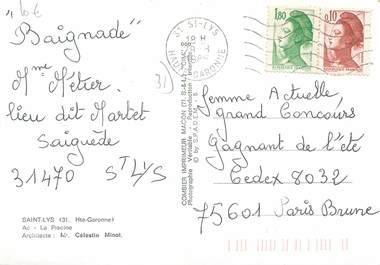 10€
"Baignade"
Mme Métier.
lieu dit Martet
Saiguède
31470 St LYS
SAINT-LYS (31. Hte-Garonne)
Ac - La Piscine
Architecte : Mr. Célestin Minot.
31
COMBIER IMPRIMEUR MACON
Photographie Véritable - Reproduction
© by S.P.A.D.E.M.
ST LYS
HAUTE GARONNE
1,80
0,10
Femme Actuelle,
Grand Concours
Gagnant de l'été
Cedex 8032
75601 Paris Brune